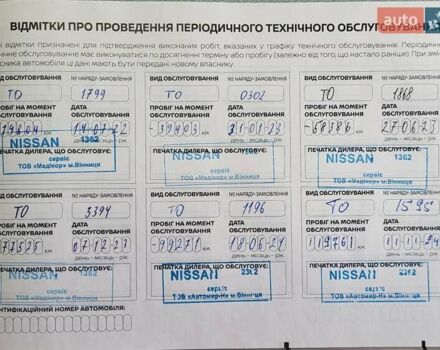 ВІДМІТКИ ПРО ПРОВЕДЕННЯ ПЕРІОДИЧНОГО ТЕХНІЧНОГО ОБСЛУГОВУВАННЯ
і відмітки призначені для підтвердження виконаних робіт, вказаних у графіку технічного обслуговування. Періодичне
обслуговування має виконуватися по досягненні терміну або пробігу (залежно від того, що настало раніше). При зміні
власника автомобіля ці дані мають бути передані новому власнику.
auto
ВИД ОБСЛУГОВУВАННЯ № НАРЯДУ-ЗАМОВЛЕННЯ ВИД ОБСЛУГОВУВАННЯ № НАРЯДУ-ЗАМОВЛЕННЯ ВИД ОБСЛУГОВУВАННЯ № НАРЯДУ-ЗАМОВЛЕННЯ
ТО 1799 ТО 0302 ТО 1868
ПРОБІГ НА МОМЕНТ ОБСЛУГОВУВАННЯ ДАТА ОБСЛУГОВУВАННЯ ПРОБІГ НА МОМЕНТ ОБСЛУГОВУВАННЯ ДАТА ОБСЛУГОВУВАННЯ ПРОБІГ НА МОМЕНТ ОБСЛУГОВУВАННЯ ДАТА ОБСЛУГОВУВАННЯ
39403 км 31-01-23 58386 км 27-06-23
день - місяць - рік
ПЕЧАТКА ДИЛЕРА, ЩО ОБСЛУГОВУЄ:
NISSAN 1362 NISSAN NISSAN 1362
сервіс сервіс сервіс
ТОВ «Медікор» м.Вінниця ТОВ «Медікор» м.Вінниця ТОВ «Медікор» м.Вінниця
ВИД ОБСЛУГОВУВАННЯ № НАРЯДУ-ЗАМОВЛЕННЯ ВИД ОБСЛУГОВУВАННЯ № НАРЯДУ-ЗАМОВЛЕННЯ ВИД ОБСЛУГОВУВАННЯ № НАРЯДУ-ЗАМОВЛЕННЯ
ТО 3394 ТО 1196 ТО 1595
ПРОБІГ НА МОМЕНТ ОБСЛУГОВУВАННЯ ДАТА ОБСЛУГОВУВАННЯ ПРОБІГ НА МОМЕНТ ОБСЛУГОВУВАННЯ ДАТА ОБСЛУГОВУВАННЯ ПРОБІГ НА МОМЕНТ ОБСЛУГОВУВАННЯ ДАТА ОБСЛУГОВУВАННЯ
77525 км 07-12-23 99271 км 18-06-24 119761 км
день - місяць - рік
ПЕЧАТКА ДИЛЕРА, ЩО ОБСЛУГОВУЄ:
NISSAN 1362 NISSAN 2362 NISSAN 2362
сервіс сервіс сервіс
ТОВ «Медікор» м.Вінниця ТОВ «Автомир-Н» м.Вінниця ТОВ «Автомир-Н» м.Вінниця
ІДЕНТИФІКАЦІЙНИЙ НОМЕР АВТОМОБІЛЯ: